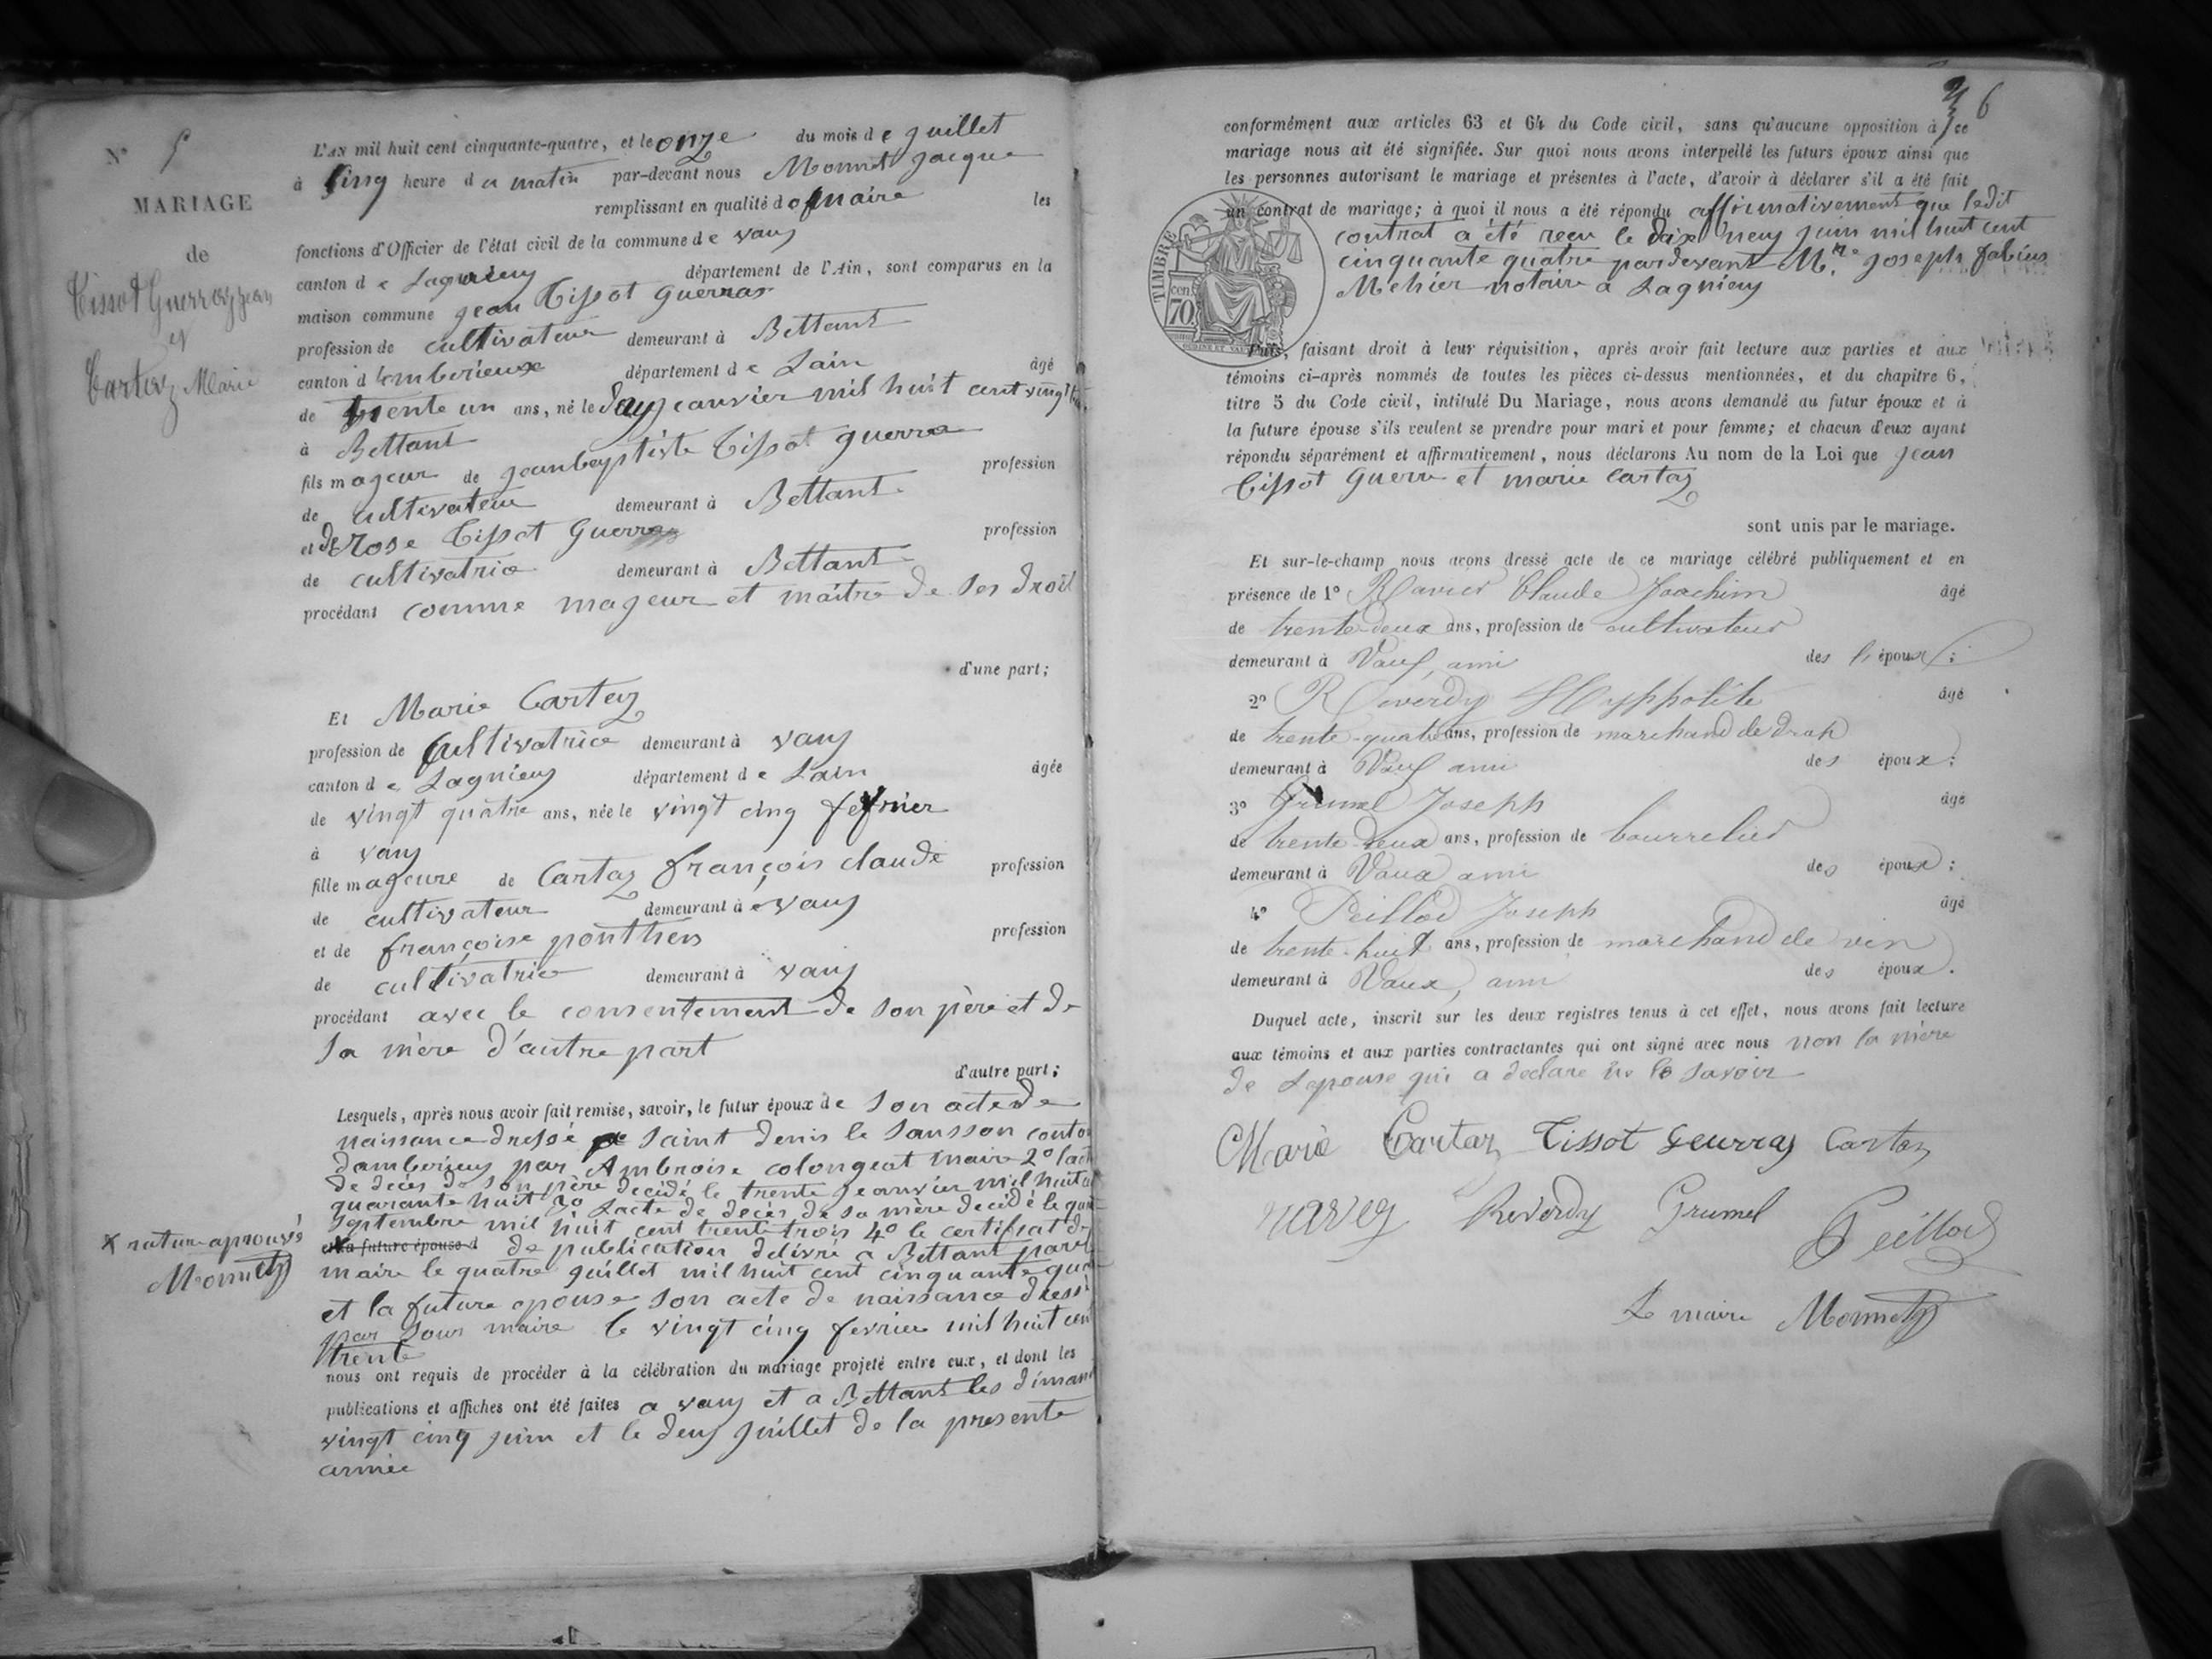 N° 5
MARIAGE
de
Tissot Guerraz jean
et
Cartaz Marie
L'AN mil huit cent cinquante-quatre, et le onze du mois de juillet
à cinq heure du matin par-devant nous Monnet jacque
remplissant en qualité de maire les
fonctions d'Officier de l'état civil de la commune de vaux
canton de Lagnieu département de l'Ain, sont comparus en la
maison commune jean Tissot Guerraz
profession de cultivateur demeurant à Bettant
canton d'ambérieux département de Lain âgé
de trente un ans, né le janvier mil huit cent vingt
à Bettant
fils majeur de jeanbaptiste Tissot guerra
profession
de cultivateur demeurant à Bettant
et de Rose Tissot Guerraz profession
de cultivatrice demeurant à Bettant
procédant comme majeur et maître de ses droit
d'une part;
Et Marie Cartaz
profession de Cultivatrice demeurant à vaux
canton de Lagnieu département de Lain âgée
de vingt quatre ans, née le vingt cinq février
à vaux
fille majeure de Cartaz françois claude profession
de cultivateur demeurant à vaux
et de françoise ponthus profession
de cultivatrice demeurant à vaux
procédant avec le consentement de son père et de
sa mère d'autre part
d'autre part;
Lesquels, après nous avoir fait remise, savoir, le futur époux de son acte de
naissance dressé a saint denis le sausson canto
damberieux par Ambroise colongeat maire 2° lacte
de décès de son père décédé le trente jeanvier mil huit ce
quarante huit 3° Lacte de décès de sa mère décédé le
septembre mil huit cent trente trois 4° le certificat de
et la future épouse d de publication délivré a Bettant par le
x rature aprouvé
Monnet
maire le quatre juillet mil huit cent cinquante qua
et la future epouse son acte de naissance dressé
par maire le vingt cinq fevrier mil huit cent
trente
nous ont requis de procéder à la célébration du mariage projeté entre eux, et dont les
publications et affiches ont été faites a vaux et a Bettant les diman
vingt cinq juin et le deux juillet de la presente
année
6
conformément aux articles 63 et 64 du Code civil, sans qu'aucune opposition à ce
mariage nous ait été signifiée. Sur quoi nous avons interpellé les futurs époux ainsi que
les personnes autorisant le mariage et présentes à l'acte, d'avoir à déclarer s'il a été fait
un contrat de mariage; à quoi il nous a été répondu affirmativement que ledit
contrat a été reçu le dixe neuf juin mil huit cent
cinquante quatre pardevant M.re joseph fabius
Mehier notaire a Lagnieu
TIMBRE
70 cent
Puis, faisant droit à leur réquisition, après avoir fait lecture aux parties et aux
témoins ci-après nommés de toutes les pièces ci-dessus mentionnées, et du chapitre 6,
titre 5 du Code civil, intitulé Du Mariage, nous avons demandé au futur époux et à
la future épouse s'ils veulent se prendre pour mari et pour femme; et chacun d'eux ayant
répondu séparément et affirmativement, nous déclarons Au nom de la Loi que jean
Tissot Guerra et marie Cartaz
sont unis par le mariage.
Et sur-le-champ nous avons dressé acte de ce mariage célébré publiquement et en
présence de 1° Ravier Claude Joachim âgé
de trente-deux ans, profession de cultivateur
demeurant à Vaux, ami des époux;
2° Reverdy Hyppolite âgé
de trente-quatre ans, profession de marchand de drap
demeurant à Vaux ami des époux;
3° Grumel Joseph âgé
de trente-deux ans, profession de bourrelier
demeurant à Vaux ami des époux;
4° Peillod Joseph âgé
de trente-huit ans, profession de marchand de vin
demeurant à Vaux, ami des époux.
Duquel acte, inscrit sur les deux registres tenus à cet effet, nous avons fait lecture
aux témoins et aux parties contractantes qui ont signé avec nous non la mère
de Lepouse qui a déclaré ne le savoir
Marie Cartaz Tissot Geurraz Cartaz
Reverdy Grumel Peillod
Le maire Monnet